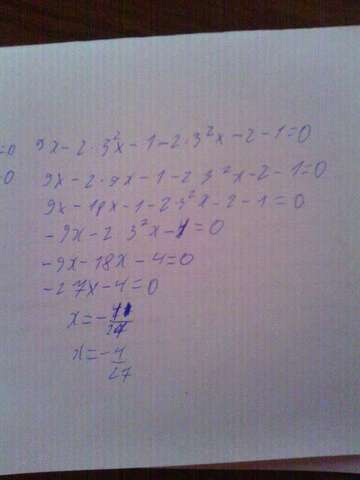 =0 9x-2·3²x-1-2·3²x-2-1=0
0 9x-2·9x-1-2·3²x-2-1=0
9x-18x-1-2·3²x-2-1=0
-9x-2·3²x-4=0
-9x-18x-4=0
-27x-4=0
x=-
x=-4/27